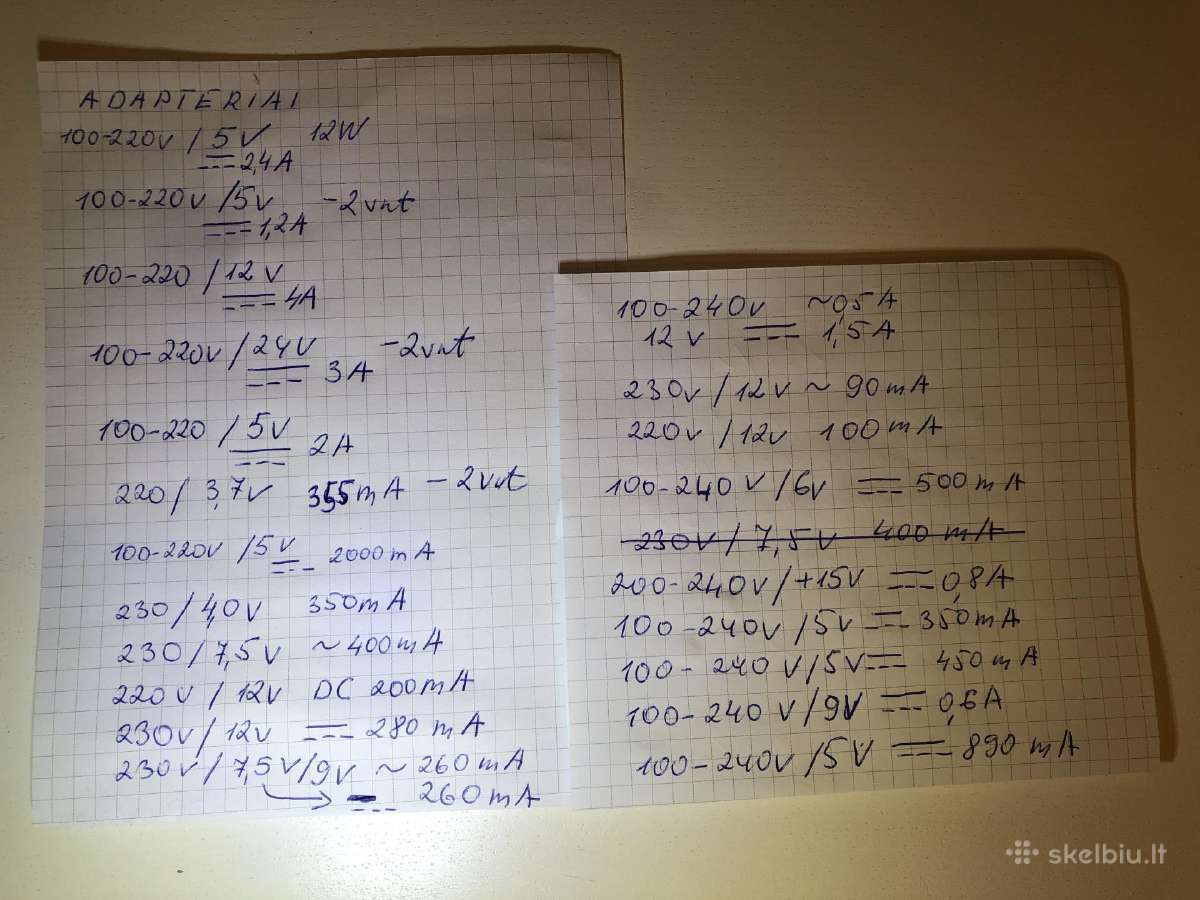 ADAPTERIAI
100-220v / 5V 12W
⎓ 2,4A
100-220v / 5v - 2vnt
⎓ 1,2A
100-220 / 12 v
⎓ 4A
100-220v / 24V - 2vnt
⎓ 3A
100-220 / 5v
⎓ 2A
220 / 3,7v 355mA - 2vnt
100-220v / 5v ⎓ 2000mA
230 / 4,0v 350mA
230 / 7,5v ~ 400mA
220v / 12v DC 200mA
230v / 12v ⎓ 280 mA
230v / 7,5v/9v ~ 260mA
→ ⎓ 260mA
100-240v ~0,5A
12v ⎓ 1,5A
230v / 12v ~ 90mA
220v / 12v 100mA
100-240 v / 6v ⎓ 500mA
230v / 7,5v 400 mA
200-240v / +15v ⎓ 0,8A
100-240v / 5v ⎓ 350mA
100-240 v / 5v ⎓ 450mA
100-240 v / 9v ⎓ 0,6A
100-240v / 5v ⎓ 890 mA
skelbiu.lt